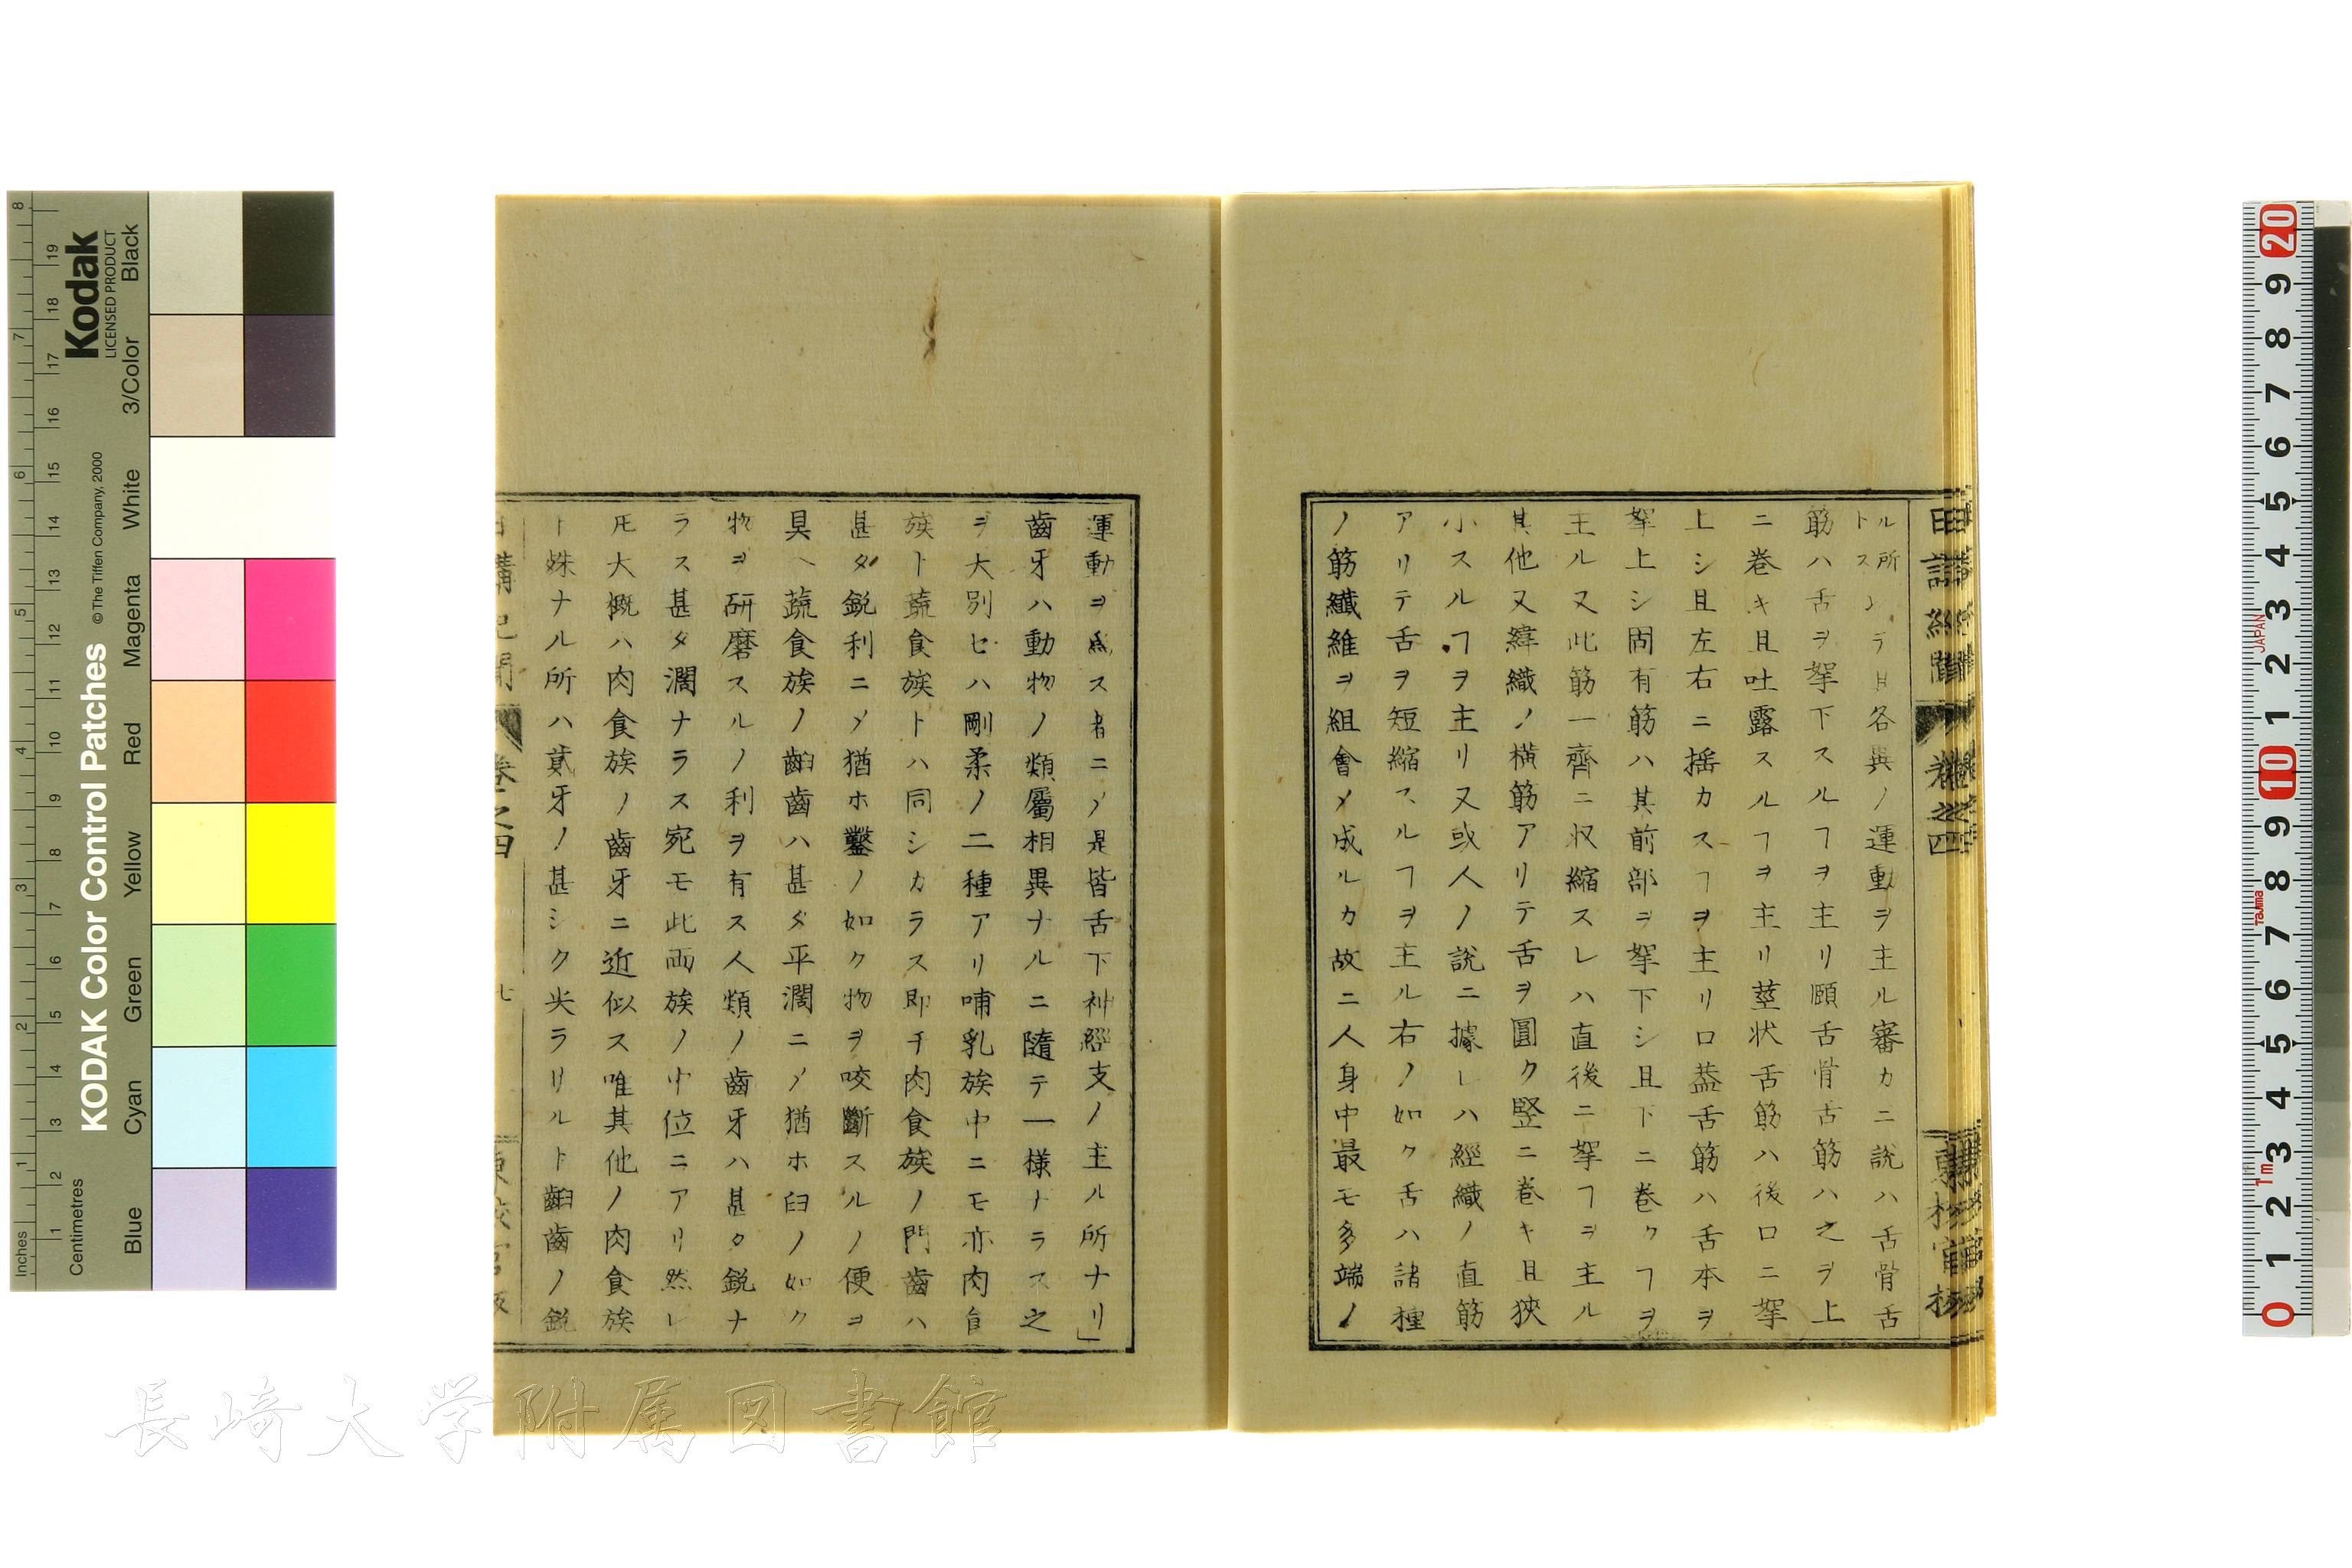 ル所トス各異ノ運動ヲ主ル審カニ説ハ舌骨舌
筋ハ舌ヲ牽下スルヿヲ主リ頤舌骨舌筋ハ之ヲ上
ニ巻キ且吐露スルヿヲ主リ莖状舌筋ハ後口ニ牽
上シ且左右ニ揺カスヿヲ主リ口蓋舌筋ハ舌本ヲ
牽上シ固有筋ハ其前部ヲ牽下シ且下ニ巻クヿヲ
主ル又此筋一齊ニ収縮スレハ直後ニ牽ヿヲ主ル
其他又緯織ノ横筋アリテ舌ヲ圓ク竪ニ巻キ且狹
小スルヿヲ主リ又或人ノ説ニ據レハ經織ノ直筋
アリテ舌ヲ短縮スルヿヲ主ル右ノ如ク舌ハ諸種
ノ筋纎維ヲ組會メ成ルカ故ニ人身中最モ多端ノ
運動ヲ為ス者ニメ是皆舌下神經支ノ主ル所ナリ」
齒牙ハ動物ノ類屬相異ナルニ隨テ一様ナラス之
ヲ大別セハ剛柔ノ二種アリ哺乳族中ニモ亦肉食
族ト蔬食族トハ同シカラス即チ肉食族ノ門齒ハ
甚タ鋭利ニメ猶ホ鑿ノ如ク物ヲ咬斷スルノ便ヲ
具ヘ蔬食族ノ齨齒ハ甚タ平濶ニメ猶ホ臼ノ如ク
物ヲ研磨スルノ利ヲ有ス人類ノ齒牙ハ甚タ鋭ナ
ラス甚タ濶ナラス宛モ此兩族ノ中位ニアリ然レ
㐧大概ハ肉食族ノ齒牙ニ近似ス唯其他ノ肉食族
ト殊ナル所ハ貳牙ノ甚シク尖ラリルト齨齒ノ鋭
講記聞 巻之四 七
長崎大学附属図書館
Kodak
LICENSED PRODUCT
KODAK Color Control Patches
© The Tiffen Company, 2000
Inches
Centimetres
Blue Cyan Green Yellow Red Magenta White 3/Color Black
JAPAN
Tajima
1m